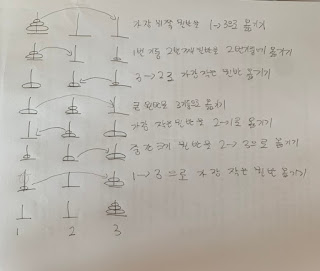 가장 위 작은 원반을 1→3으로 옮기기
1번 기둥 2번째 원반을 2번 기둥에 옮기기
3→2로 가장 작은 원반 옮기기
큰 원반을 3기둥으로 옮기기
가장 작은 원반을 2→1로 옮기기
중간 크기 원반을 2→3으로 옮기기
1→3으로 가장 작은 원반 옮기기
1 2 3